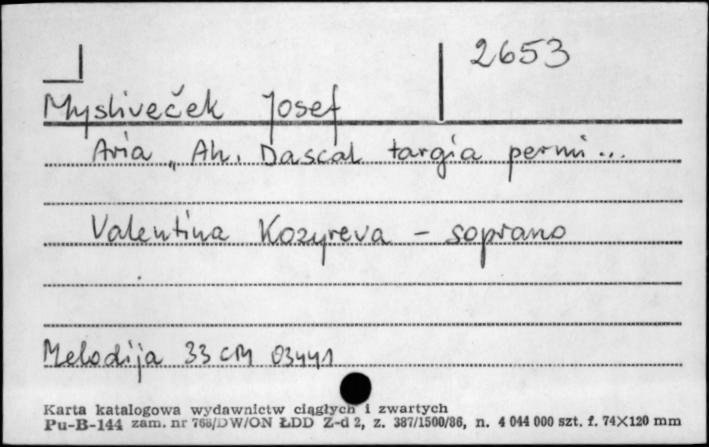 2653
Mysliveček Josef
Aria „Ah. Dascal targia permi...
Valentina Kozyreva - soprano
Melodija 33 CM 03441
Karta katalogowa wydawnictw ciągłych i zwartych
Pu-B-144 zam. nr 768/DW/ON ŁDD Z-d 2, z. 387/1500/86, n. 4 044 000 szt. f. 74×120 mm